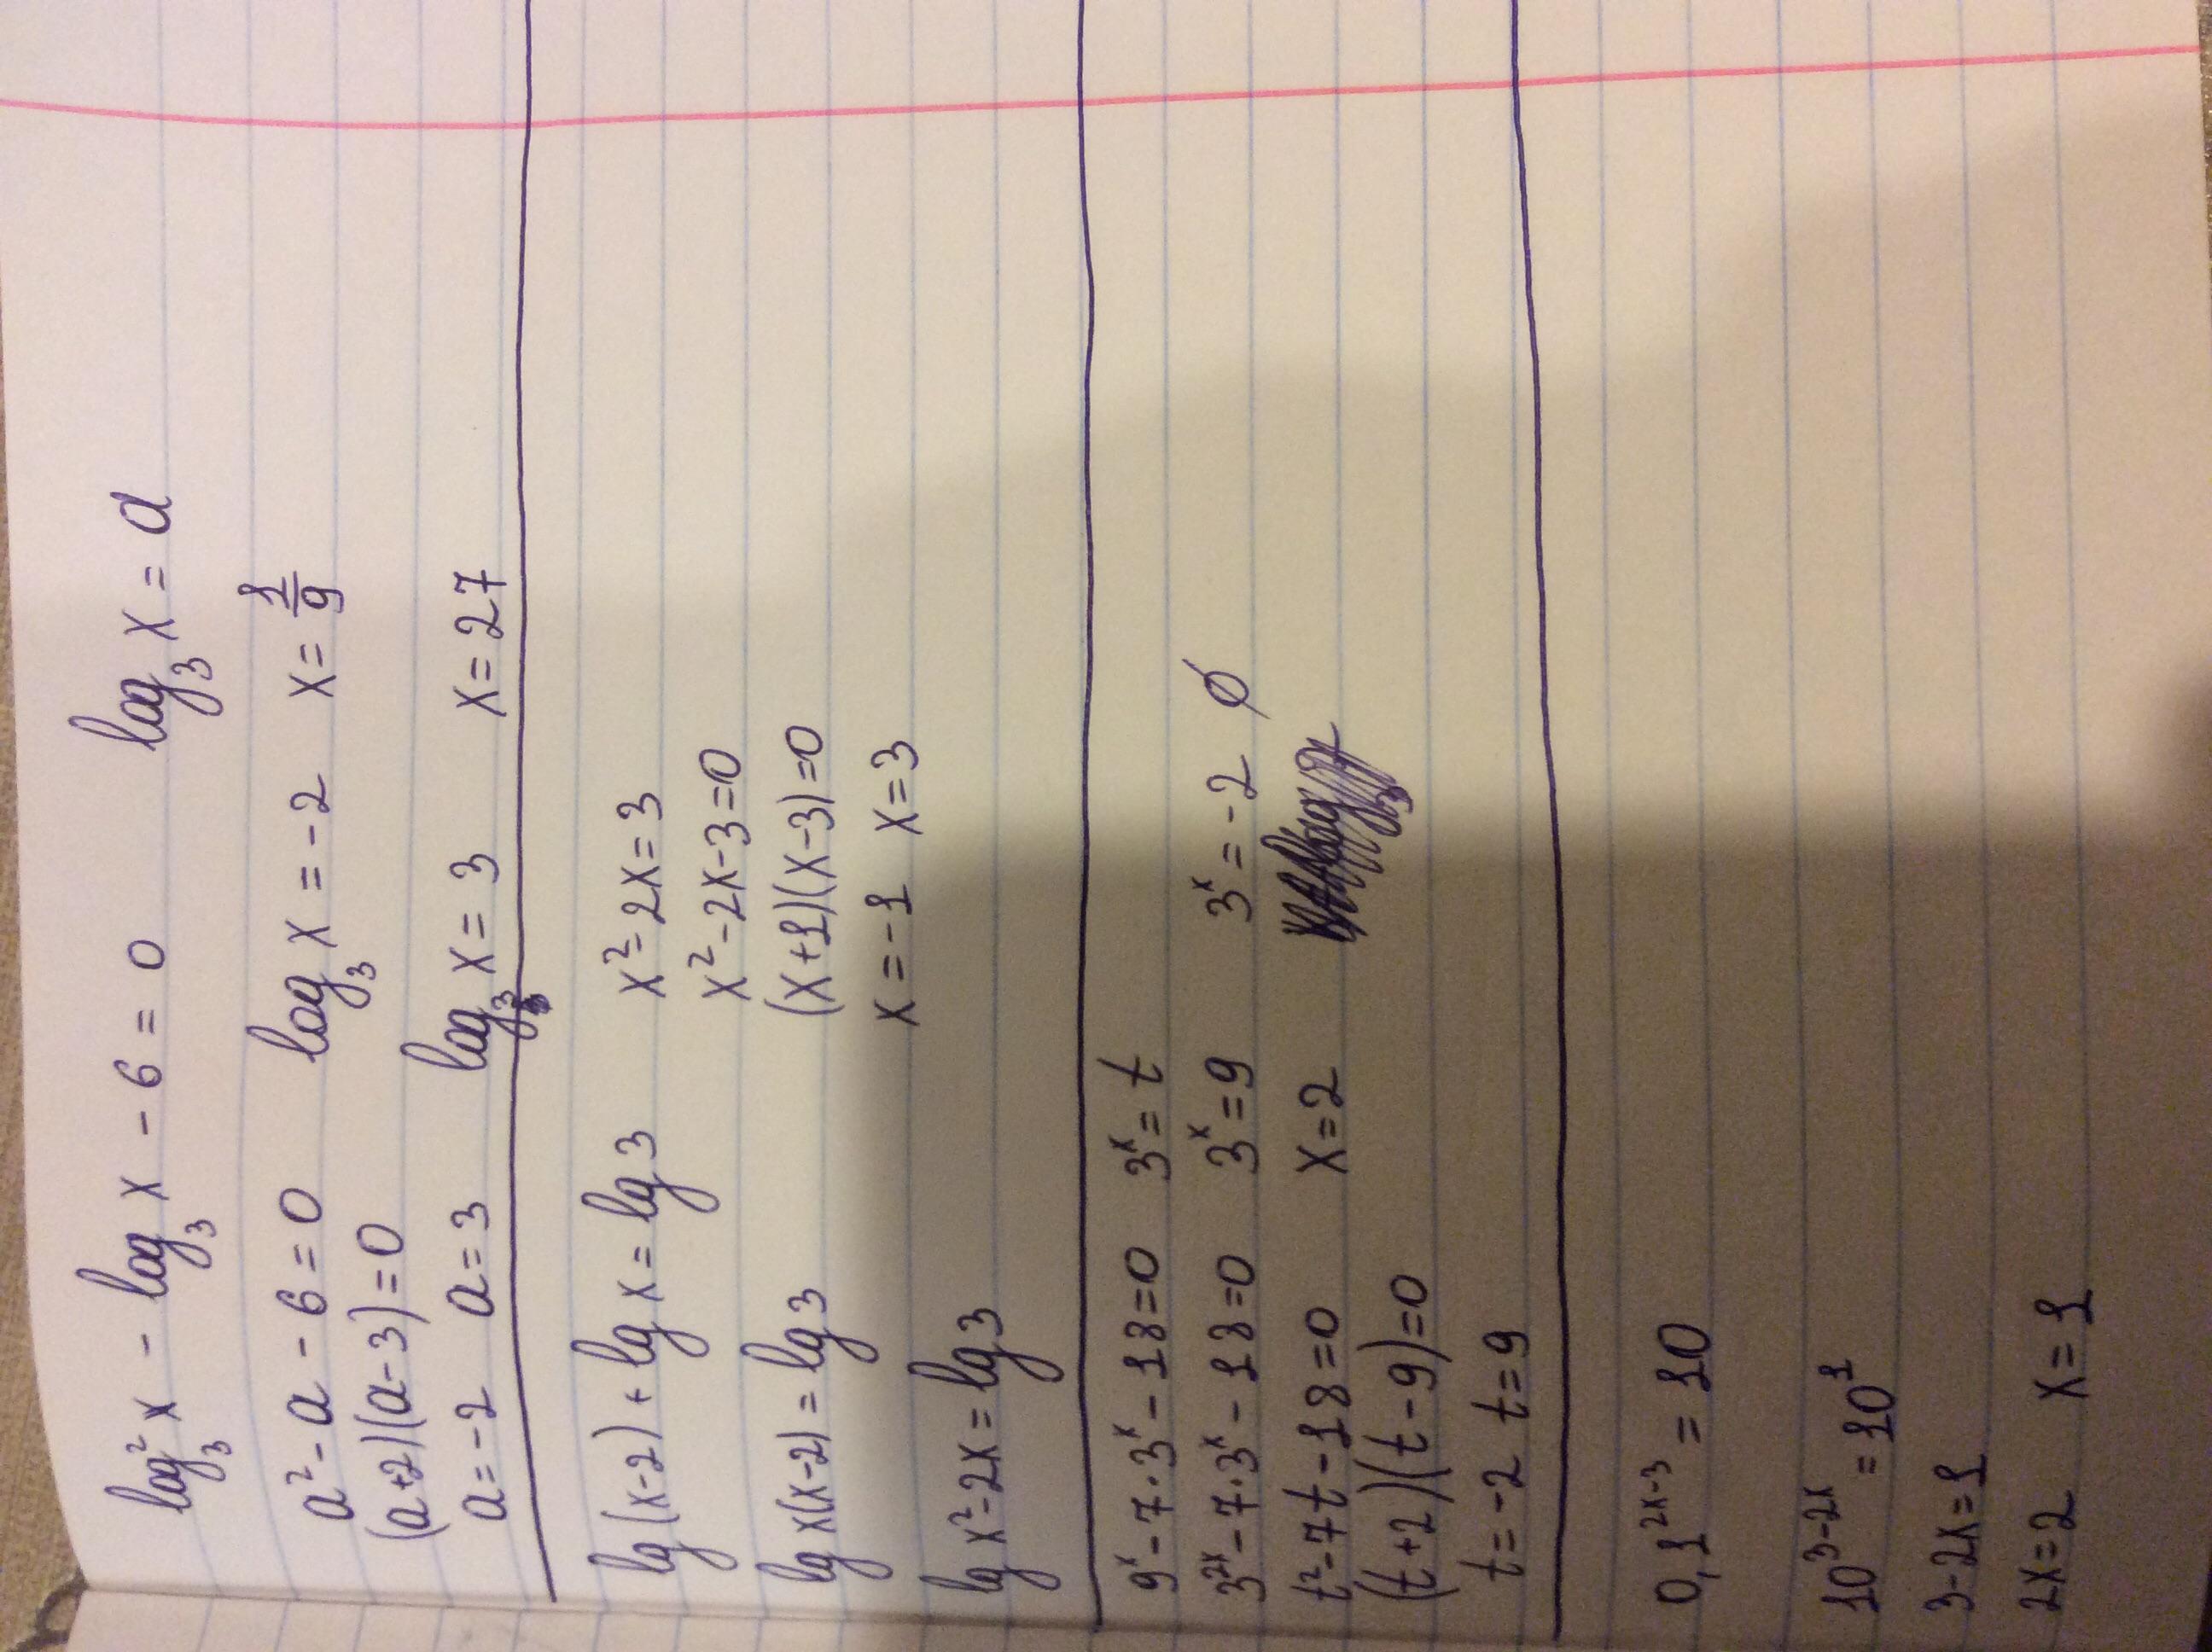 log₃²x - log₃x - 6 = 0   log₃x = a
a² - a - 6 = 0   log₃x = -2   x = 1/9
(a+2)(a-3)=0
a=-2   a=3   log₃x = 3   x=27
lg(x-2) + lg x = lg3   x²-2x=3
x²-2x-3=0
lg x(x-2) = lg3   (x+1)(x-3)=0
x=-1   x=3
lg x²-2x = lg3
9ˣ-7·3ˣ-18=0   3ˣ=t
3²ˣ-7·3ˣ-18=0   3ˣ=9   3ˣ=-2   ∅
t²-7t-18=0   x=2
(t+2)(t-9)=0
t=-2   t=9
0,1²ˣ⁻³ = 10
10³⁻²ˣ = 10¹
3-2x=1
2x=2   x=1